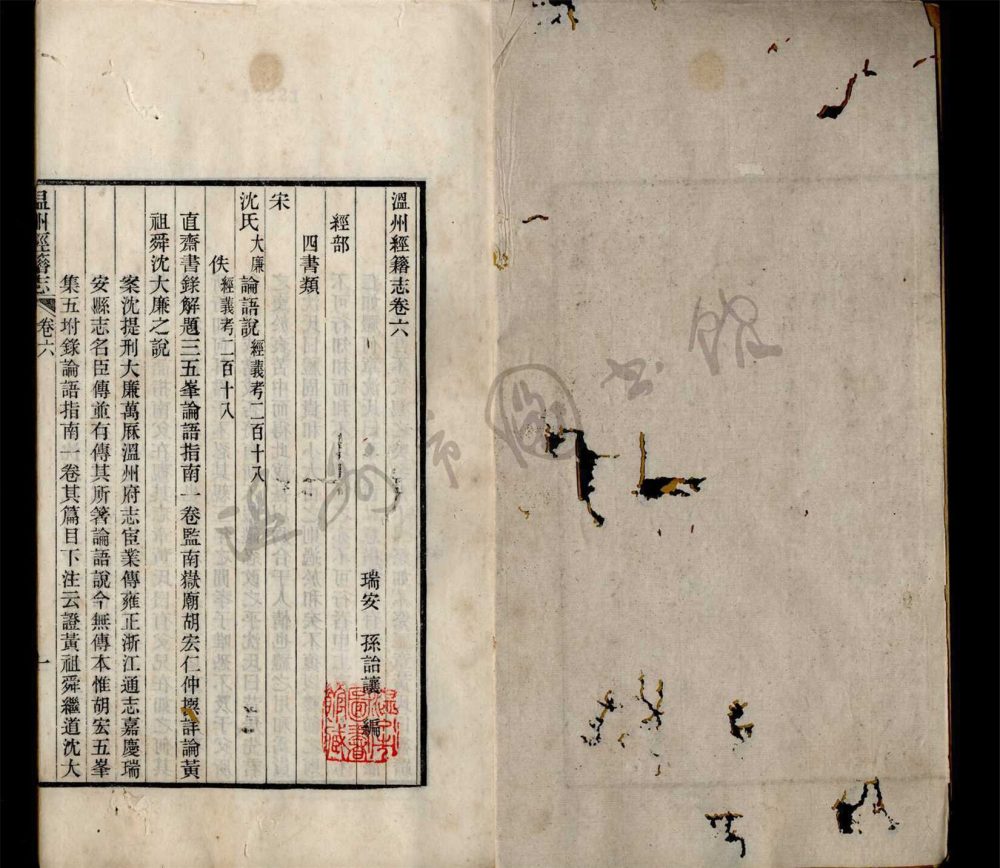 溫州經籍志卷六
瑞安 孫詒讓 編
經部
四書類
宋
沈氏大廉論語說經義考二百十八
佚經義考二百十八
直齋書錄解題三五峯論語指南一卷監南嶽廟胡宏仁仲撰詳論黃
祖舜沈大廉之說
案沈提刑大廉萬厤溫州府志宦業傳雍正浙江通志嘉慶瑞
安縣志名臣傳並有傳其所著論語說今無傳本惟胡宏五峯
集五坿錄論語指南一卷其篇目下注云證黃祖舜繼道沈大
溫州經籍志 卷六 一
溫州市圖書館
溫州市圖書館藏